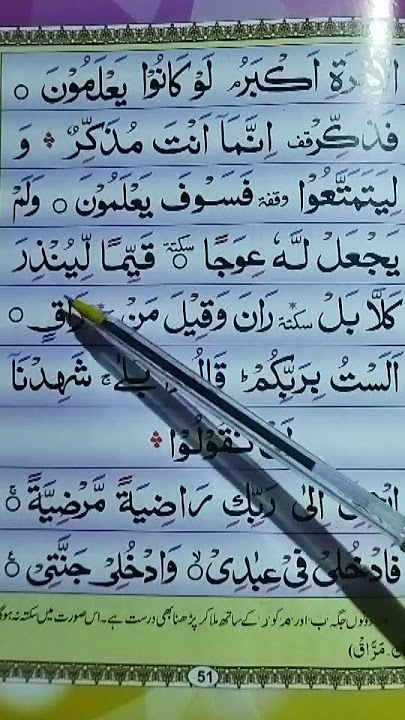 اَكْبَرُ لَوْ كَانُوْا يَعْلَمُوْنَ ○
فَذَكِّرْ قف اِنَّمَآ اَنْتَ مُذَكِّرٌ وَ
لِيَتَمَتَّعُوْا وقفة فَسَوْفَ يَعْلَمُوْنَ ○ وَلَمْ
يَجْعَلْ لَّهٗ عِوَجًا ○ سكتة قَيِّمًا لِّيُنْذِرَ
كَلَّا بَلْ سكتة رَانَ وَقِيْلَ مَنْ رَاقٍ ○
اَلَسْتُ بِرَبِّكُمْ ط بَلٰى ج شَهِدْنَا
تَقُوْلُوْا
اِلٰى رَبِّكِ رَاضِيَةً مَّرْضِيَّةً ○
فَادْخُلِىْ فِىْ عِبٰدِىْ ○ وَادْخُلِىْ جَنَّتِىْ ○
جگہ 'ب' اور 'مد' کو 'ر' کے ساتھ ملا کر پڑھنا بھی درست ہے۔ اس صورت میں سکتہ نہ ہوگا
مَرَّاقٍ)
51